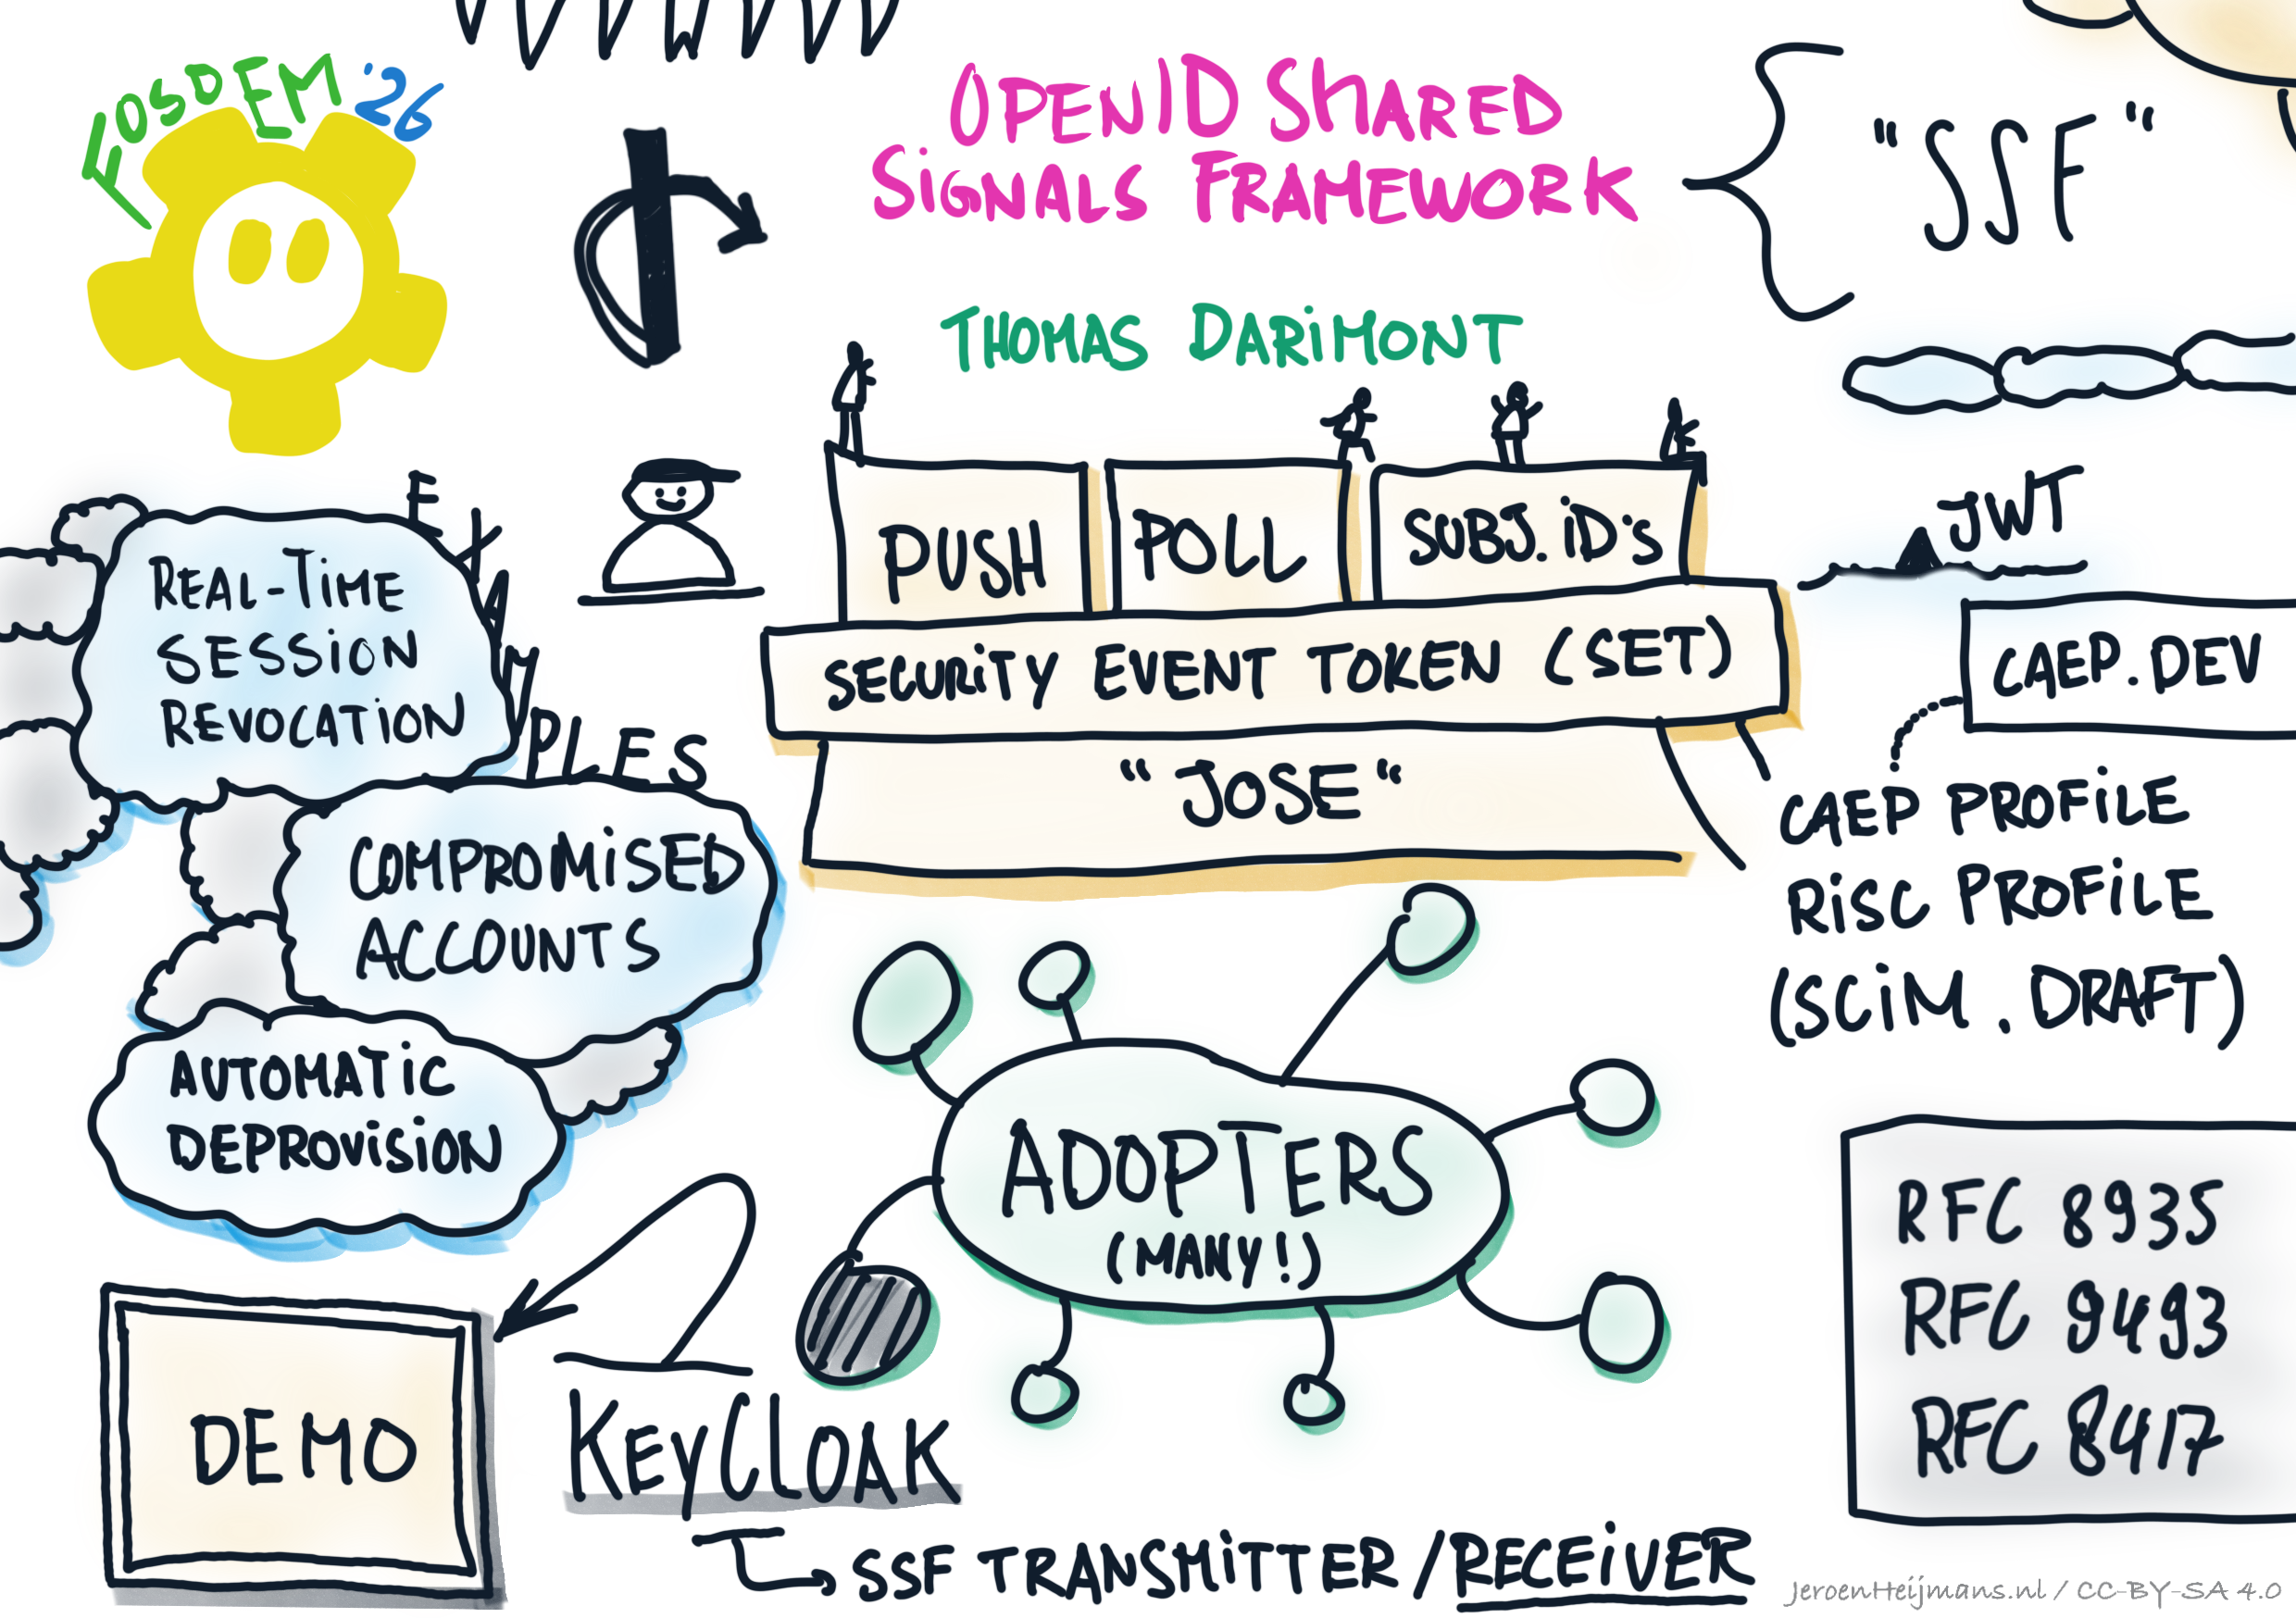 FOSDEM '26
OPENID SHARED
SIGNALS FRAMEWORK
"SSF"
THOMAS DARIMONT
PUSH
POLL
SUBJ. iD's
SECURITY EVENT TOKEN (SET)
"JOSE"
JWT
CAEP.DEV
CAEP PROFILE
RISC PROFILE
(SCIM . DRAFT)
EXAMPLES
REAL-TIME
SESSION
REVOCATION
COMPROMISED
ACCOUNTS
AUTOMATIC
DEPROVISION
ADOPTERS
(MANY!)
RFC 8935
RFC 9493
RFC 8417
DEMO
KEYCLOAK
SSF TRANSMITTER/RECEIVER
JeroenHeijmans.nl / CC-BY-SA 4.0